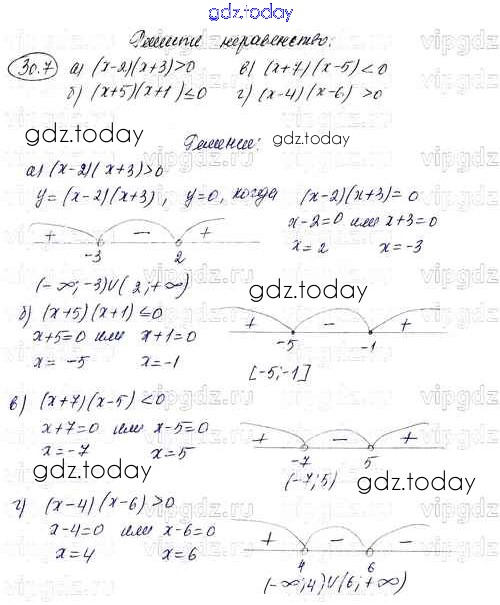 gdz.today
Решите неравенство:
30.7 а) (x-2)(x+3)>0 в) (x+7)(x-5)<0
б) (x+5)(x+1)≤0 г) (x-4)(x-6)>0
gdz.today
Решение:
gdz.today
а) (x-2)(x+3)>0
y=(x-2)(x+3), y=0, когда (x-2)(x+3)=0
x-2=0 или x+3=0
x=2 x=-3
+ - +
-3 2
(-∞;-3)∪(2;+∞)
gdz.today
б) (x+5)(x+1)≤0
x+5=0 или x+1=0
x=-5 x=-1
+ - +
-5 -1
[-5;-1]
в) (x+7)(x-5)<0
x+7=0 или x-5=0
x=-7 x=5
+ - +
-7 5
(-7;5)
gdz.today
gdz.today
г) (x-4)(x-6)>0
x-4=0 или x-6=0
x=4 x=6
+ - +
4 6
(-∞;4)∪(6;+∞)